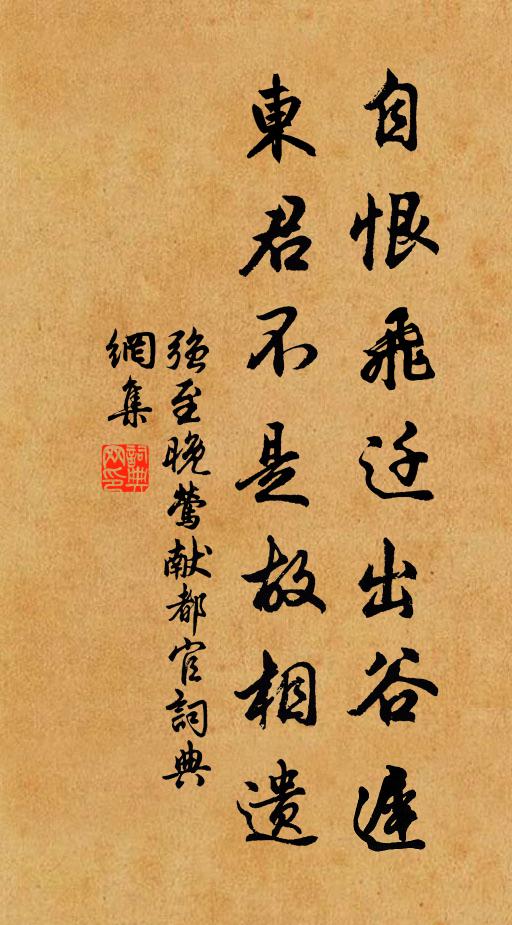 自恨飛迁出谷遲
東君不是故相遗
強至晚鶯献都官詞典
網集
詞典網印